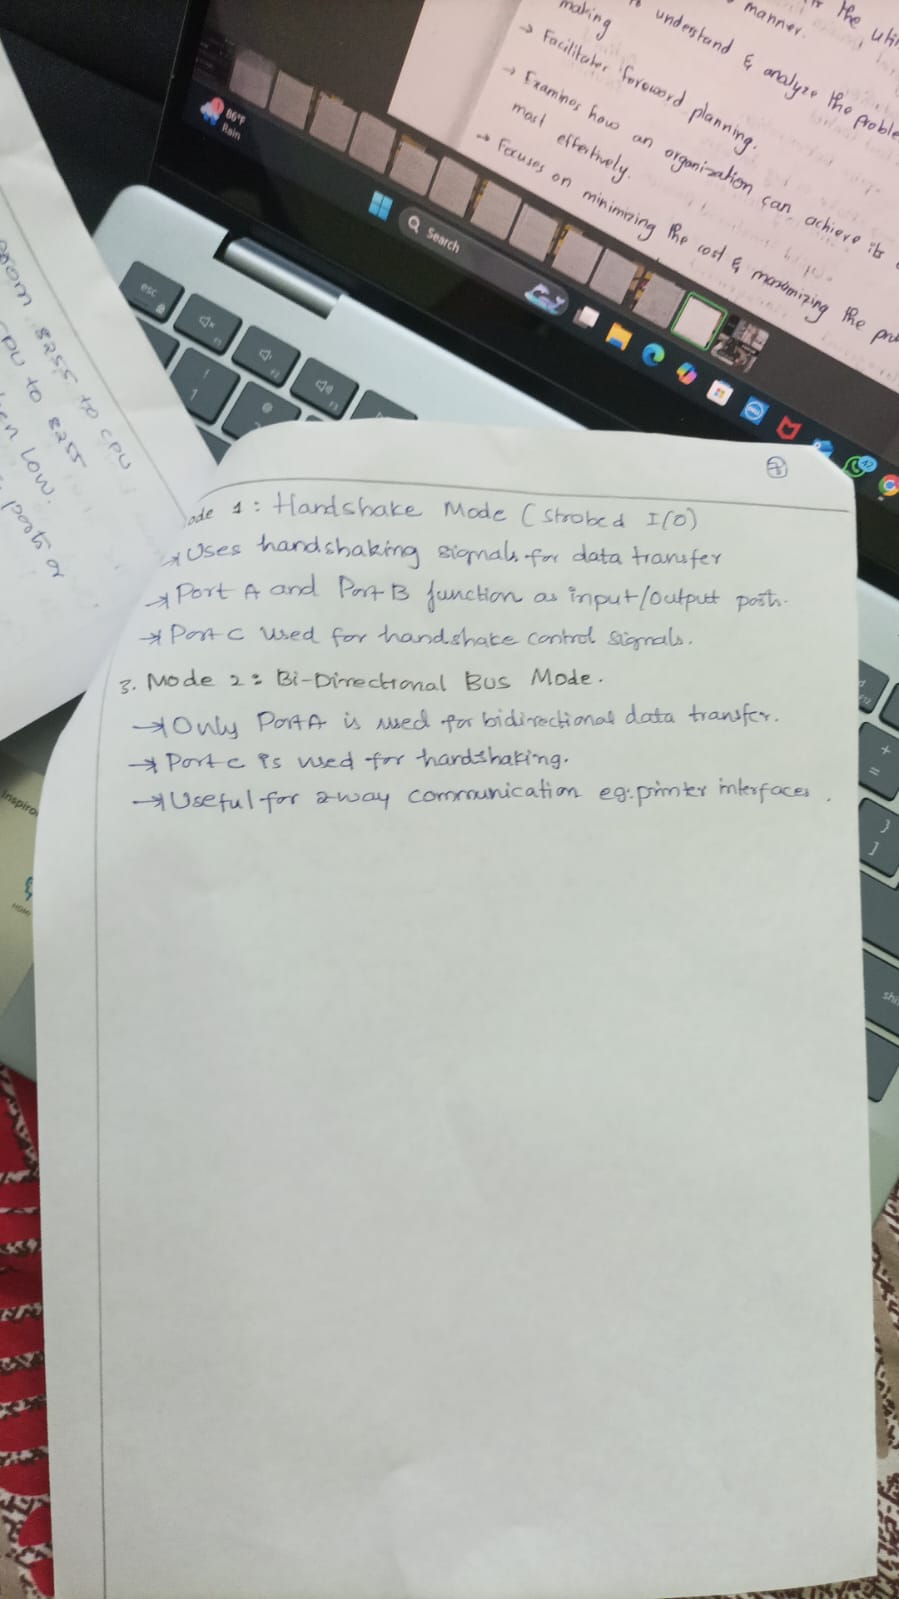 making
understand & analyze the
manner.
the
→ Facilitates foreword planning.
→ Examines how an organization can achieve its
most effectively.
→ Focuses on minimizing the cost & maximizing the
86°F
Rain
Search
esc
F1
F2
F3
!
1
@
8255 to CPU
CPU to 8255
low.
7
ode 1: Handshake Mode (Strobed I/O)
→ Uses handshaking signals for data transfer
→ Port A and Port B function as input/output ports.
→ Port C used for handshake control signals.
3. Mode 2: Bi-Directional Bus Mode.
→ Only Port A is used for bidirectional data transfer.
→ Port C is used for handshaking.
→ Useful for 2way communication eg: printer interfaces.
+
=
}
]
shi
Inspiro
HDMI